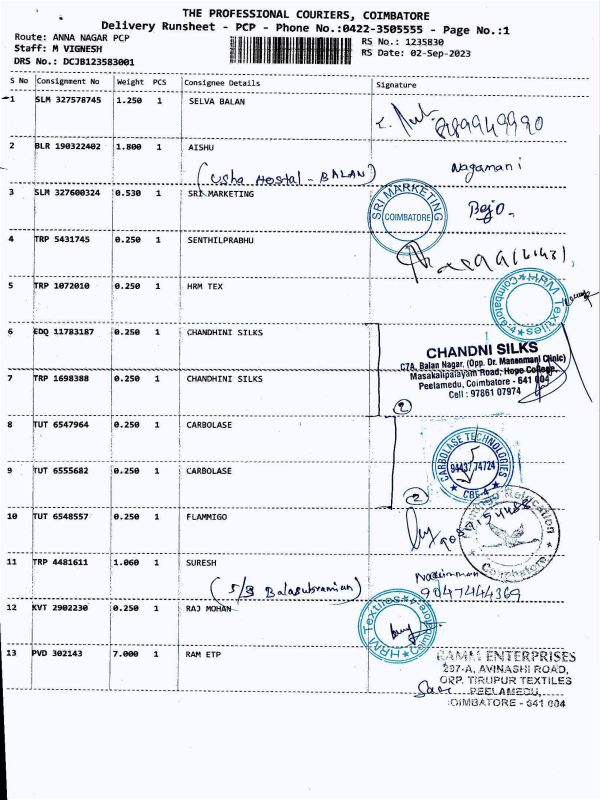 THE PROFESSIONAL COURIERS, COIMBATORE
Delivery Runsheet - PCP - Phone No.:0422-3505555 - Page No.:1
Route: ANNA NAGAR PCP
RS No.: 1235830
Staff: M VIGNESH
RS Date: 02-Sep-2023
DRS No.: DCJB123583001
S No Consignment No Weight PCS Consignee Details Signature
1 SLM 327578745 1.250 1 SELVA BALAN
8189949990
2 BLR 190322402 1.800 1 AISHU
Nagamani
(Usha Hostal - BALAN)
3 SLM 327600324 0.530 1 SRI MARKETING
SRI MARKETING
COIMBATORE
4 TRP 5431745 0.250 1 SENTHILPRABHU
5 TRP 1072010 0.250 1 HRM TEX
HRM Textiles
Coimbatore-4
6 EDQ 11783187 0.250 1 CHANDHINI SILKS
CHANDNI SILKS
C7A, Balan Nagar, (Opp. Dr. Manenmani Clinic)
Masakalipalayam Road, Hope College,
Peelamedu, Coimbatore - 641 004
Cell : 97861 07974
7 TRP 1698388 0.250 1 CHANDHINI SILKS
2
8 TUT 6547964 0.250 1 CARBOLASE
CARBOLASE TECHNOLOGIES
94437 74724
CBE-4
9 TUT 6555682 0.250 1 CARBOLASE
2
10 TUT 6548557 0.250 1 FLAMMIGO
Relocation
Coimbatore
11 TRP 4481611 1.060 1 SURESH
9047444369
(S/B Balasubramian)
12 KVT 2902230 0.250 1 RAJ MOHAN
HRM Textiles
Coimbatore-4
13 PVD 302143 7.000 1 RAM ETP
RAMM ENTERPRISES
297-A, AVINASHI ROAD,
OPP. TIRUPUR TEXTILES
PEELAMEDU,
COIMBATORE - 641 004